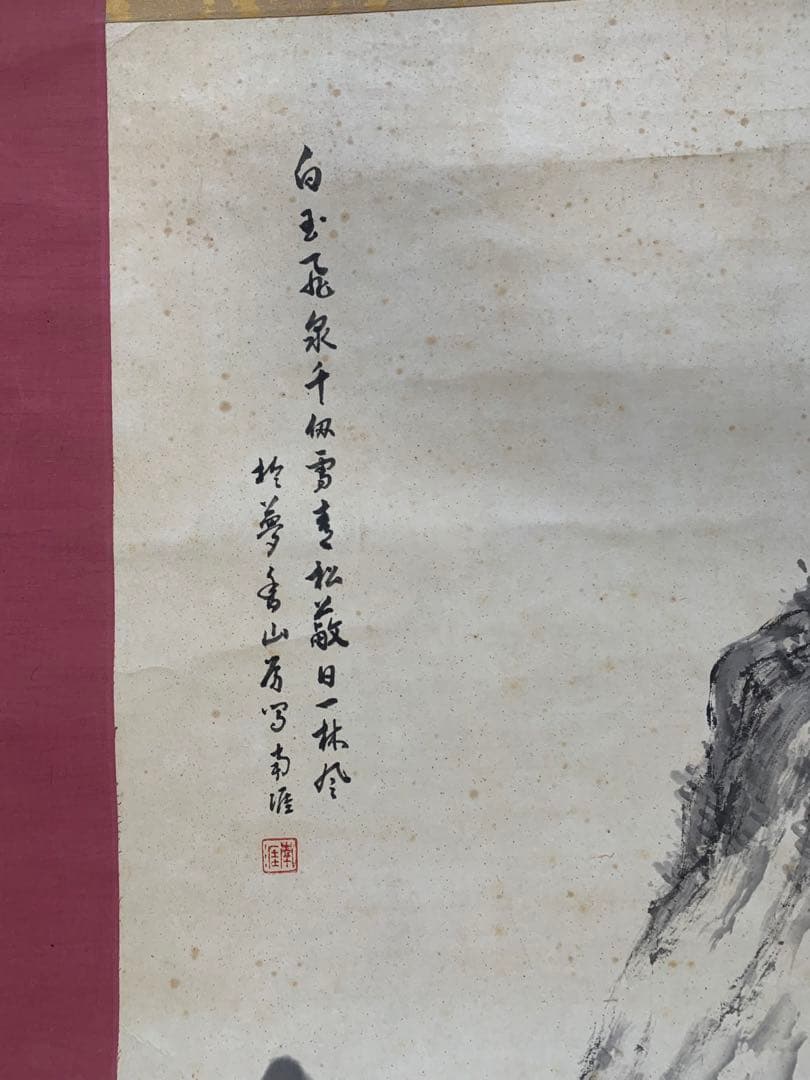 白玉飛泉千仭雪青松蔽日一林風
於夢香山房写南涯
南涯